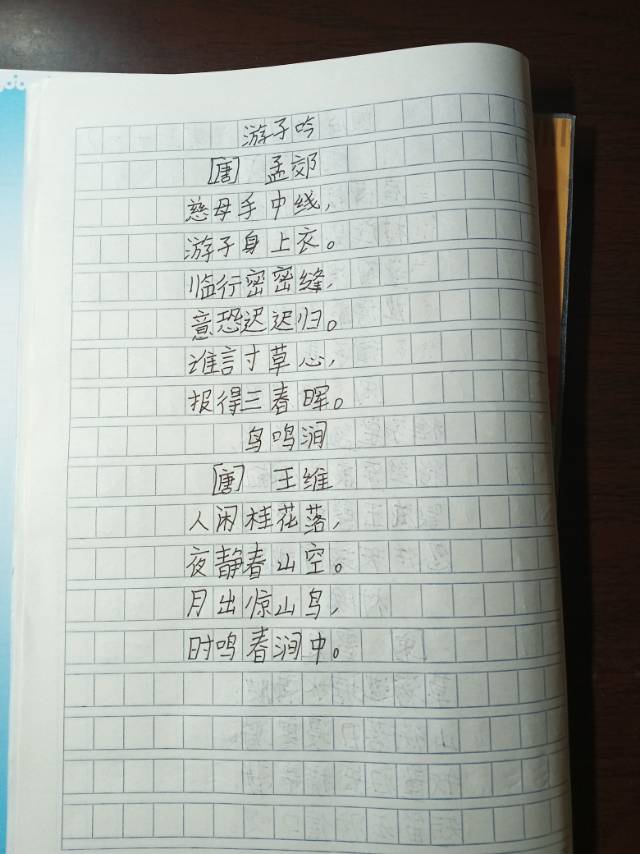 游子吟
[唐] 孟郊
慈母手中线，
游子身上衣。
临行密密缝，
意恐迟迟归。
谁言寸草心，
报得三春晖。
鸟鸣涧
[唐] 王维
人闲桂花落，
夜静春山空。
月出惊山鸟，
时鸣春涧中。